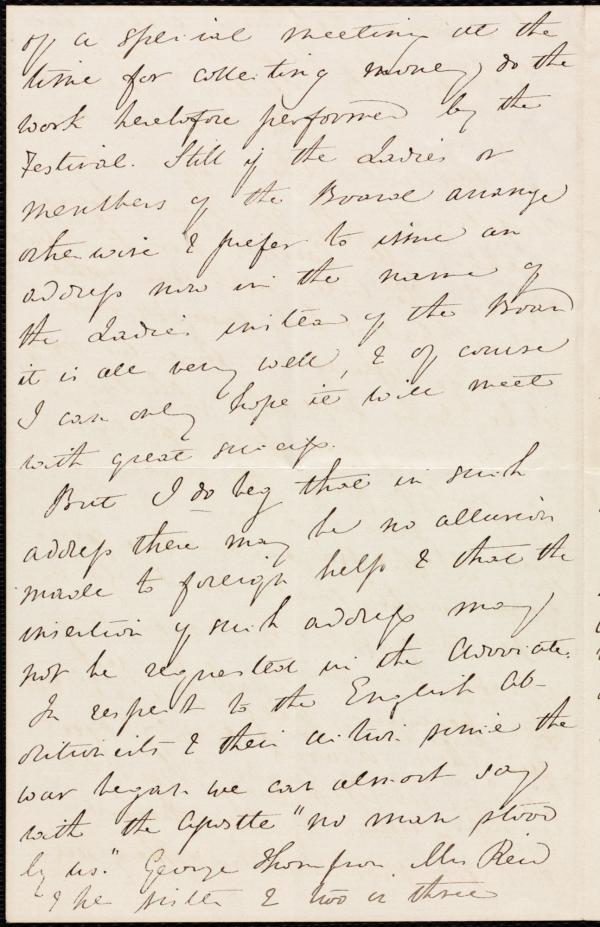 of a special meeting at the
time for collecting money, do the
work heretofore performed by the
Festival. Still if the Ladies or
members of the Board arrange
otherwise & prefer to issue an
address now in the name of
the Ladies instead of the Board
it is all very well, & of course
I can only hope it will meet
with great success.
But I do beg that in such
address there may be no allusion
made to foreign help & that the
insertion of such address may
not be requested in the Advocate.
In respect to the English Ab-
olitionists & their action since the
war began we can almost say
with the Apostle "no man stood
by us." George Thompson Mrs Reid
& her sister & two or three